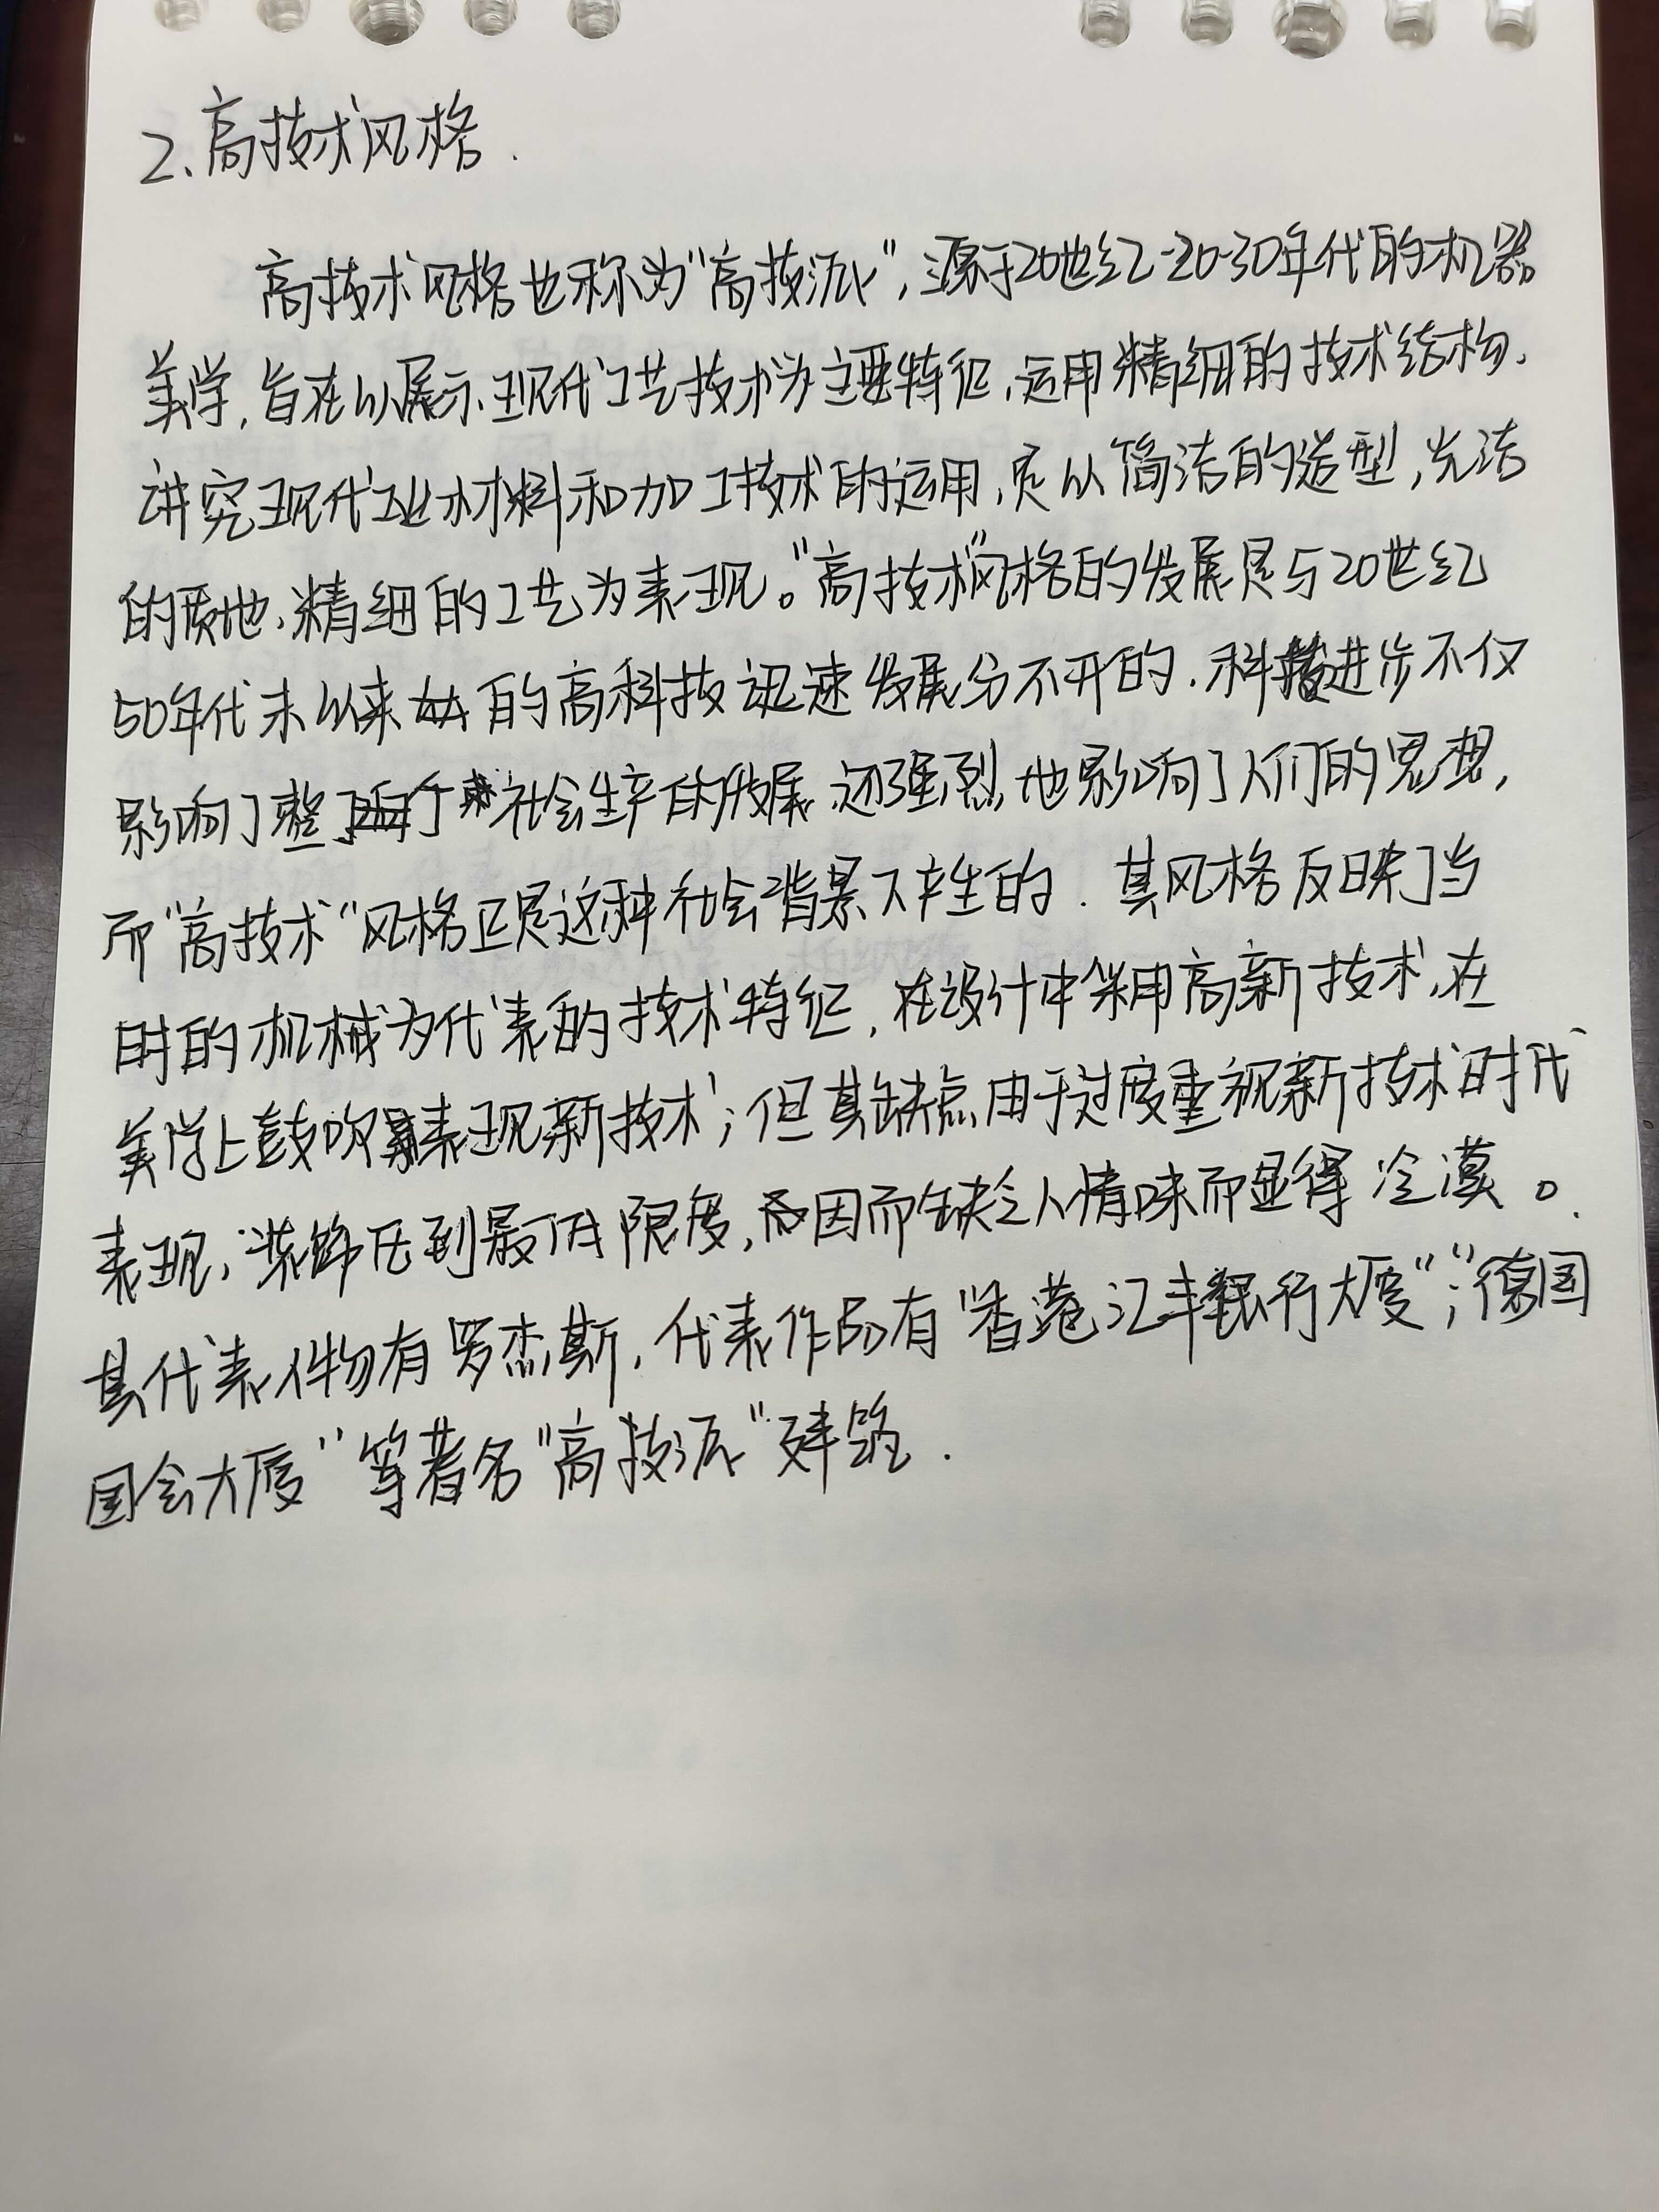 2、高技术风格.
高技术风格也称为“高技派”,源于20世纪20-30年代的机器
美学,旨在以展示现代工艺技术为主要特征,运用精细的技术结构、
讲究现代工业材料和加工技术的运用,是以简洁的造型,光洁
的质地、精细的工艺为表现。“高技术”风格的发展是与20世纪
50年代末以来的高科技迅速发展分不开的.科技进步不仅
影响了整个社会生产的发展,还强烈地影响了人们的思想,
而“高技术”风格正是这种社会背景下产生的.其风格反映了当
时的机械为代表的技术特征,在设计中采用高新技术,在
美学上鼓吹表现新技术;但其缺点由于过度重视新技术时代
表现,装饰压到最低限度,因而缺乏人情味而显得冷漠。
其代表人物有罗杰斯,代表作品有“香港汇丰银行大厦”;“德国
国会大厦”等著名“高技派”建筑.